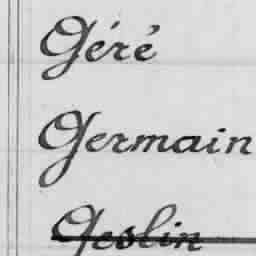 Géré
Germain
Geslin